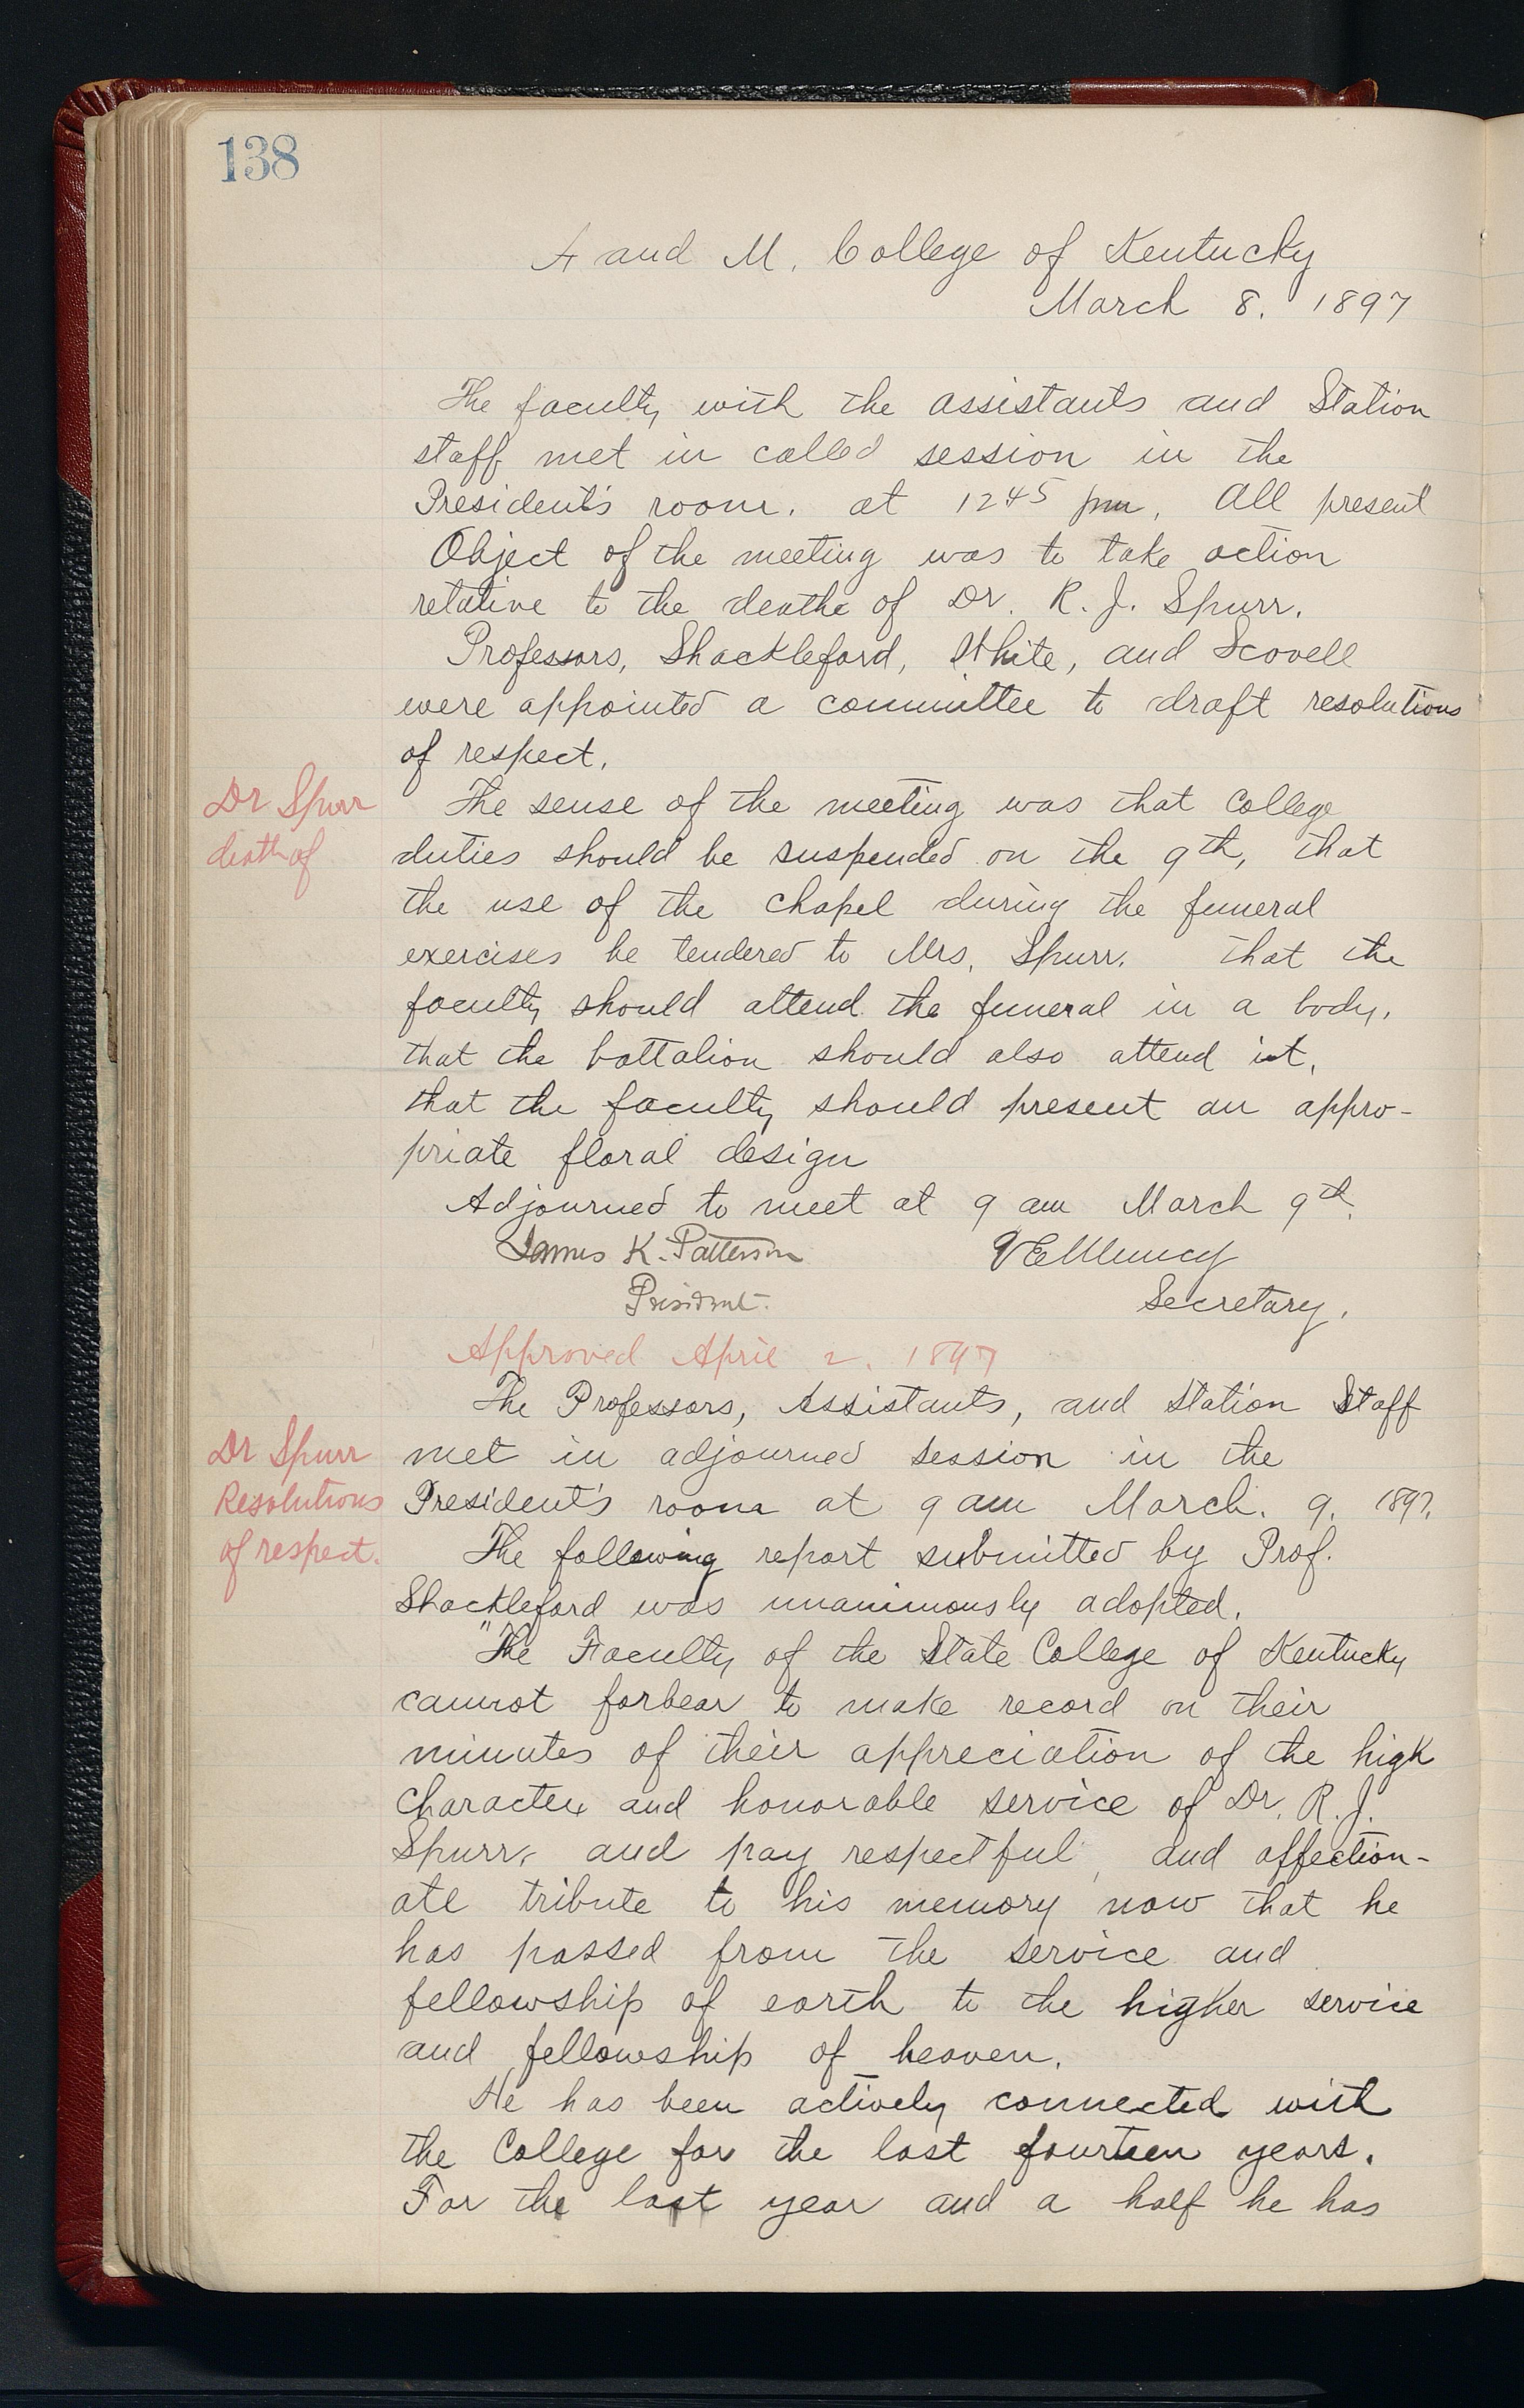 138
A and M. College of Kentucky
March 8. 1897
The faculty with the assistants and Station
staff met in called session in the
President's room. at 12 45 pm, All present
Object of the meeting was to take action
relative to the death of Dr. R. J. Spurr.
Professors, Shackleford, White, and Scovell
were appointed a committee to draft resolutions
of respect.
Dr Spurr
death of
The sense of the meeting was that College
duties should be suspended on the 9th, that
the use of the chapel during the funeral
exercises be tendered to Mrs. Spurr. that the
faculty should attend the funeral in a body,
that the battalion should also attend it,
that the faculty should present an appro-
priate floral design
Adjourned to meet at 9 am March 9th.
James K. Patterson
President.
V E Muncy
Secretary.
Approved April 2. 1897
The Professors, Assistants, and Station Staff
Dr Spurr
Resolutions
of respect.
met in adjourned session in the
President's room at 9 am March. 9. 1897.
The following report submitted by Prof.
Shackleford was unanimously adopted.
"The Faculty of the State College of Kentucky
cannot forbear to make record on their
minutes of their appreciation of the high
character and honorable service of Dr. R. J.
Spurr, and pay respectful, and affection-
ate tribute to his memory now that he
has passed from the service and
fellowship of earth to the higher service
and fellowship of heaven.
He has been actively connected with
the College for the last fourteen years.
For the last year and a half he has